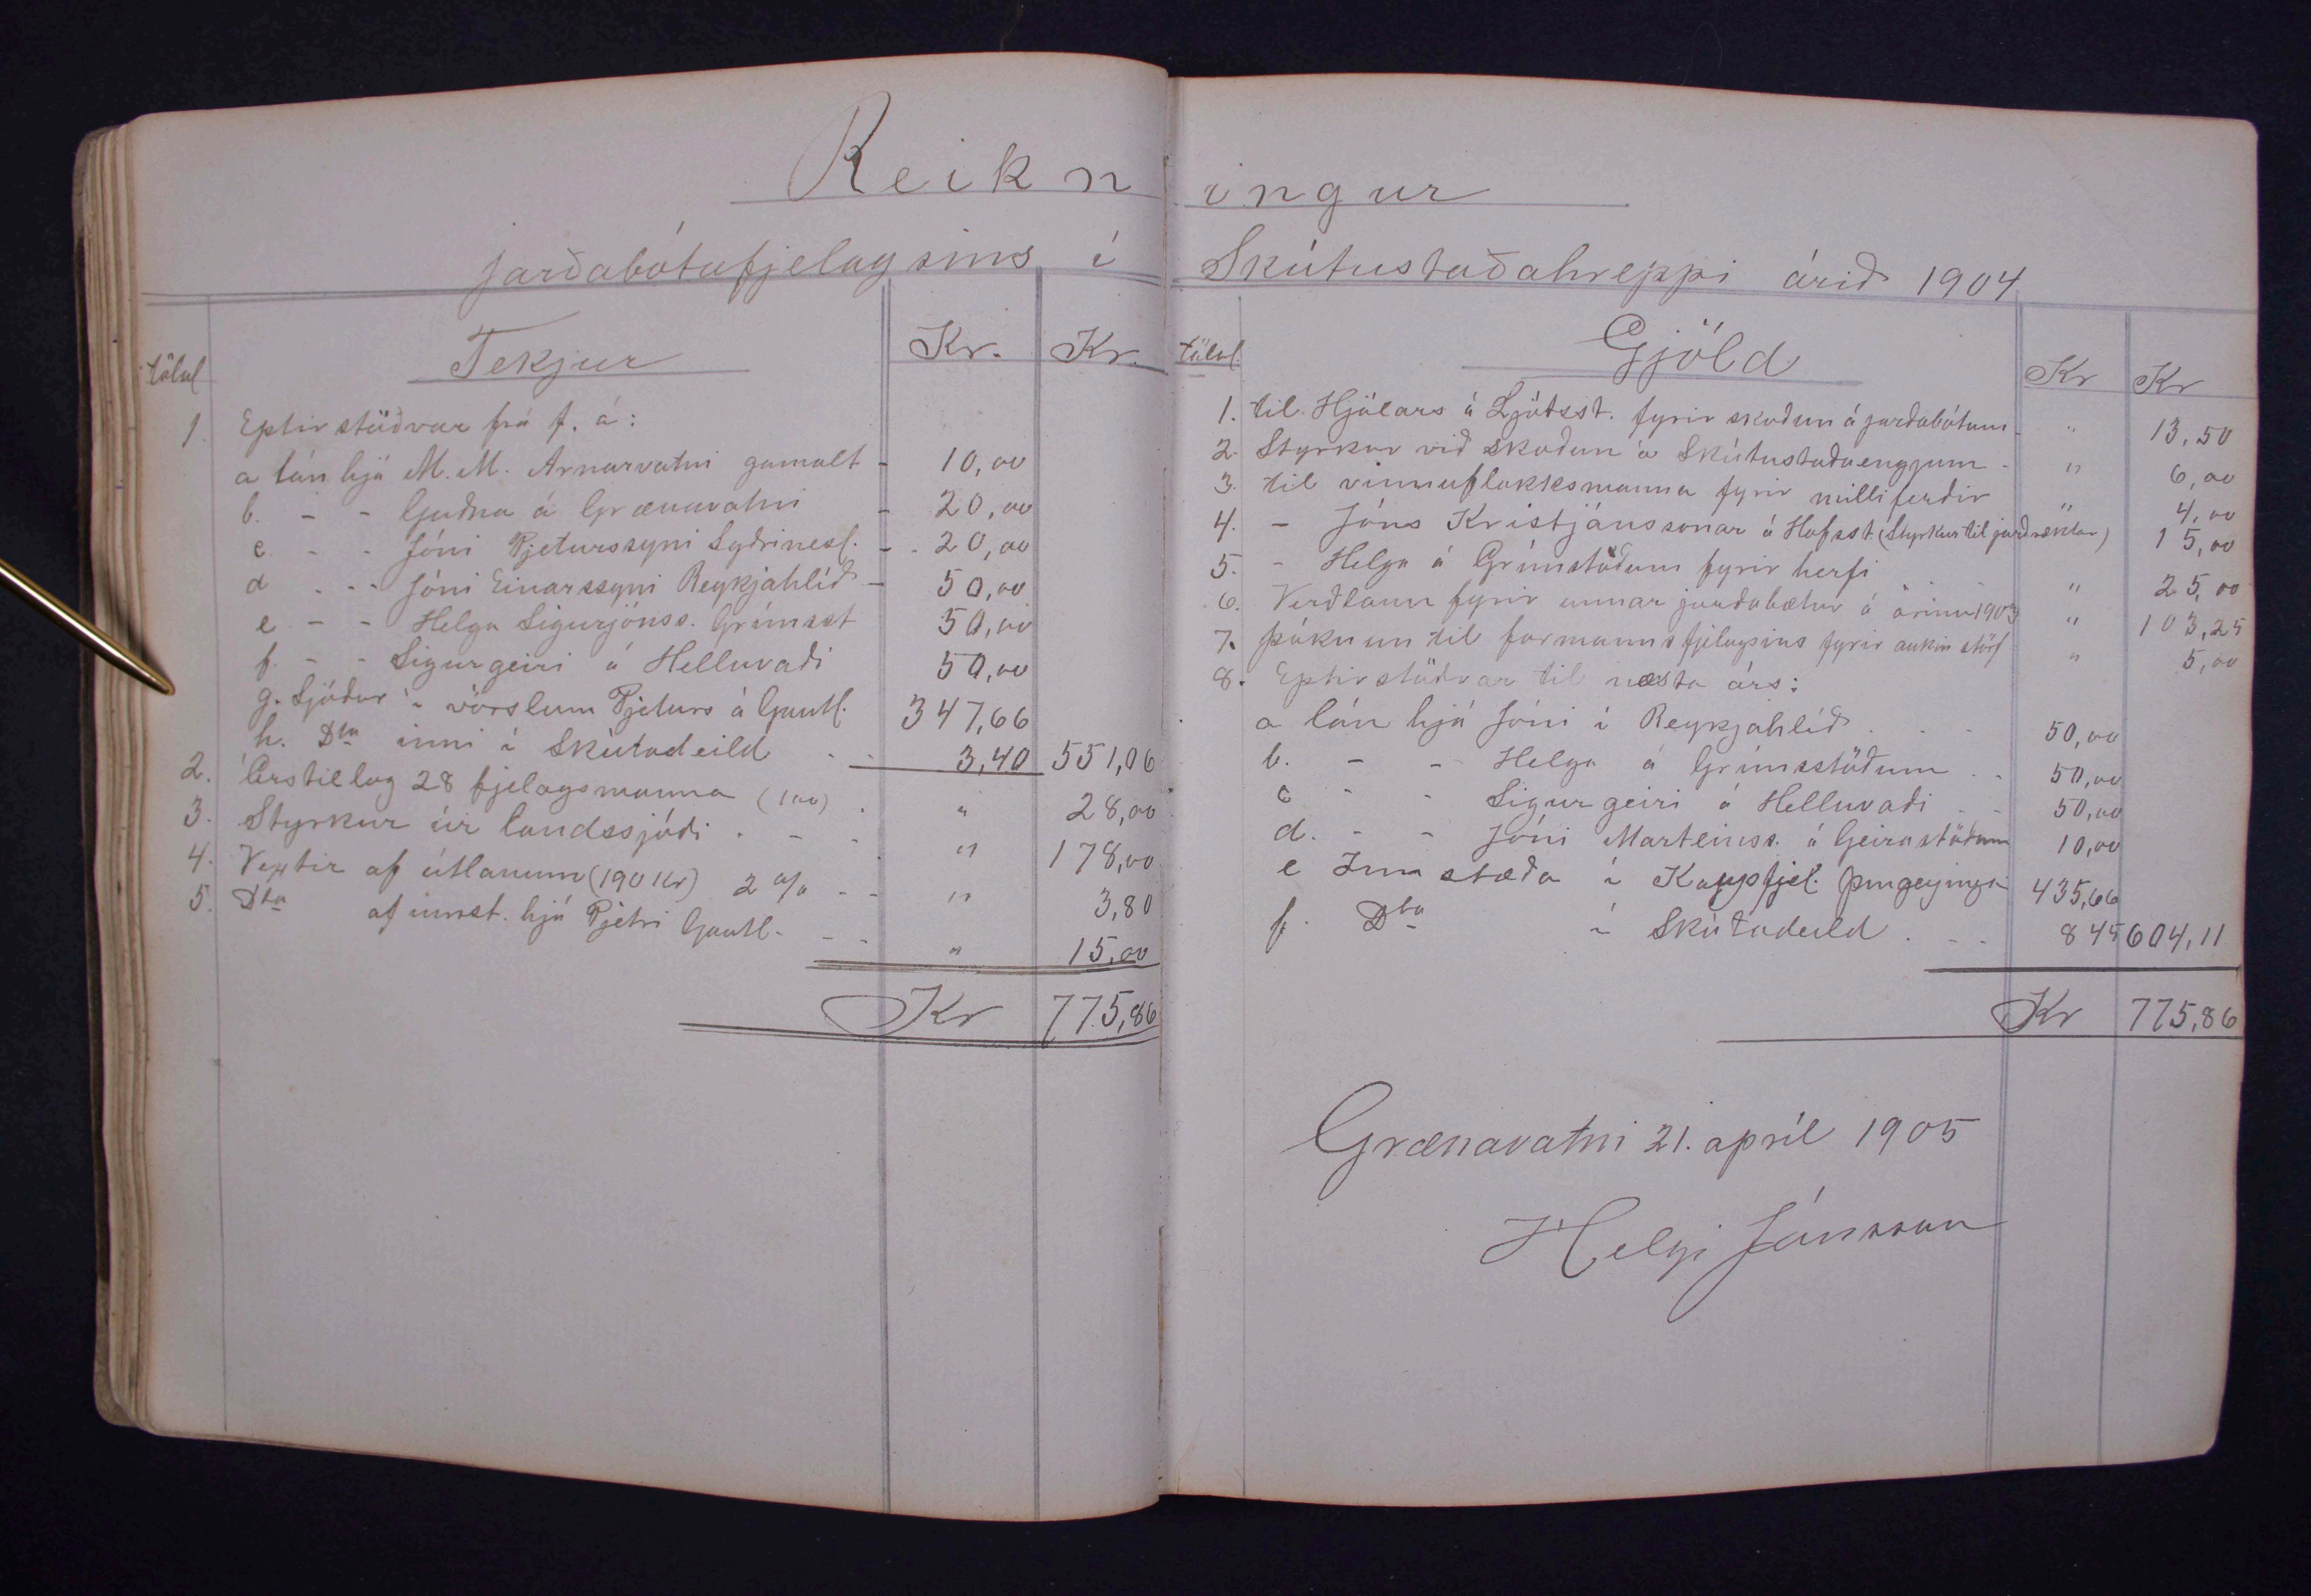 Reikningur
jarðabótafjelagsins í Skútustaðahreppi árið 1904
tölul Tekjur Kr. Kr.
1. Eptirstöðvar frá f. á:
a lán hjá M. M. Arnarvatni gamalt - 10,00
b. - - Guðna á Grænavatni - 20,00
c - - Jóni Pjeturssyni Syðrinesl. - - 20,00
d - - - Jóni Einarssyni Reykjahlíð - 50,00
e - - Helga Sigurjónss. Grímsst 50,00
f. - - Sigurgeiri á Helluvaði 50,00
g. Sjóður í vörslum Pjeturs á Gautl. 347,66
h. Dto inni í Skútudeild - - 3,40 551,06
2. Árstillag 28 fjelagsmanna (1 00) . " 28,00
3. Styrkur úr landssjóði . - - " 178,00
4. Vextir af útlánum (190 Kr) 2 % - - " 3,80
5. Dto af innst. hjá Pjetri Gautl. - - " 15,00
Kr 775,86
tölul. Gjöld Kr Kr
1. til Hjálars á Ljótsst. fyrir skoðun á jarðabótum - " 13,50
2. Styrkur við skoðun á Skútustaðaengjum - " 6,00
3. til vinnuflokksmanna fyrir milliferðir " 4,00
4. - Jóns Kristjánssonar á Hofsst. (Styrkur til garðræktar) 15,00
5. - Helga á Grímstöðum fyrir herfi " 25,00
6. Verðlaun fyrir unnar jarðabætur á árinu 1903 " 103,25
7. Þóknun til formanns fjelagsins fyrir aukin störf " 5,00
8. Eptirstöðvar til næsta árs:
a lán hjá Jóni í Reykjahlíð . . - 50,00
b. - - Helga á Grímsstöðum . - 50,00
c - - Sigurgeiri á Helluvaði - - 50,00
d. - - Jóni Marteinss. á Geirastöðum 10,00
e Innstæða í Kaupfjel. Þingeyinga 435,66
f. Dto í Skútudeild . - - 8 45 604,11
Kr 775,86
Grænavatni 21. apríl 1905
Helgi Jónsson